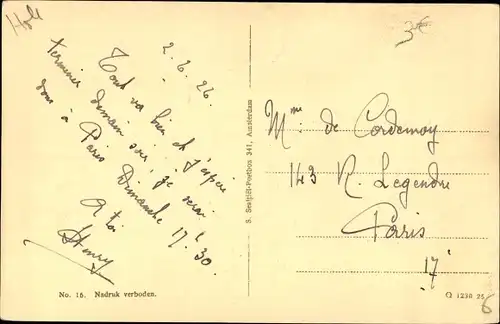 Holl
3€
2.6.26.
Tout va bien et j'espère
terminer demain soir. je serai
donc à Paris Dimanche 17h30
A toi
Henry
S. Sealpiët-Postbox 341, Amsterdam
Mme de Cordemoy
143 R. Legendre
Paris
17e
No. 16. Nadruk verboden.
Q 1230 25
6